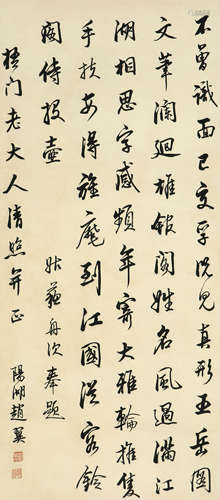 不曾識面已交孚况見真形五岳圖
文筆瀾迴雄館閣姓名風過滿江
湖相思字感頻年寄大雅輪推隻
手扶安得旌麾到江國從容鈴
閣侍投壺 姑蘇舟次奉題
梧門老大人清照并正
陽湖趙翼